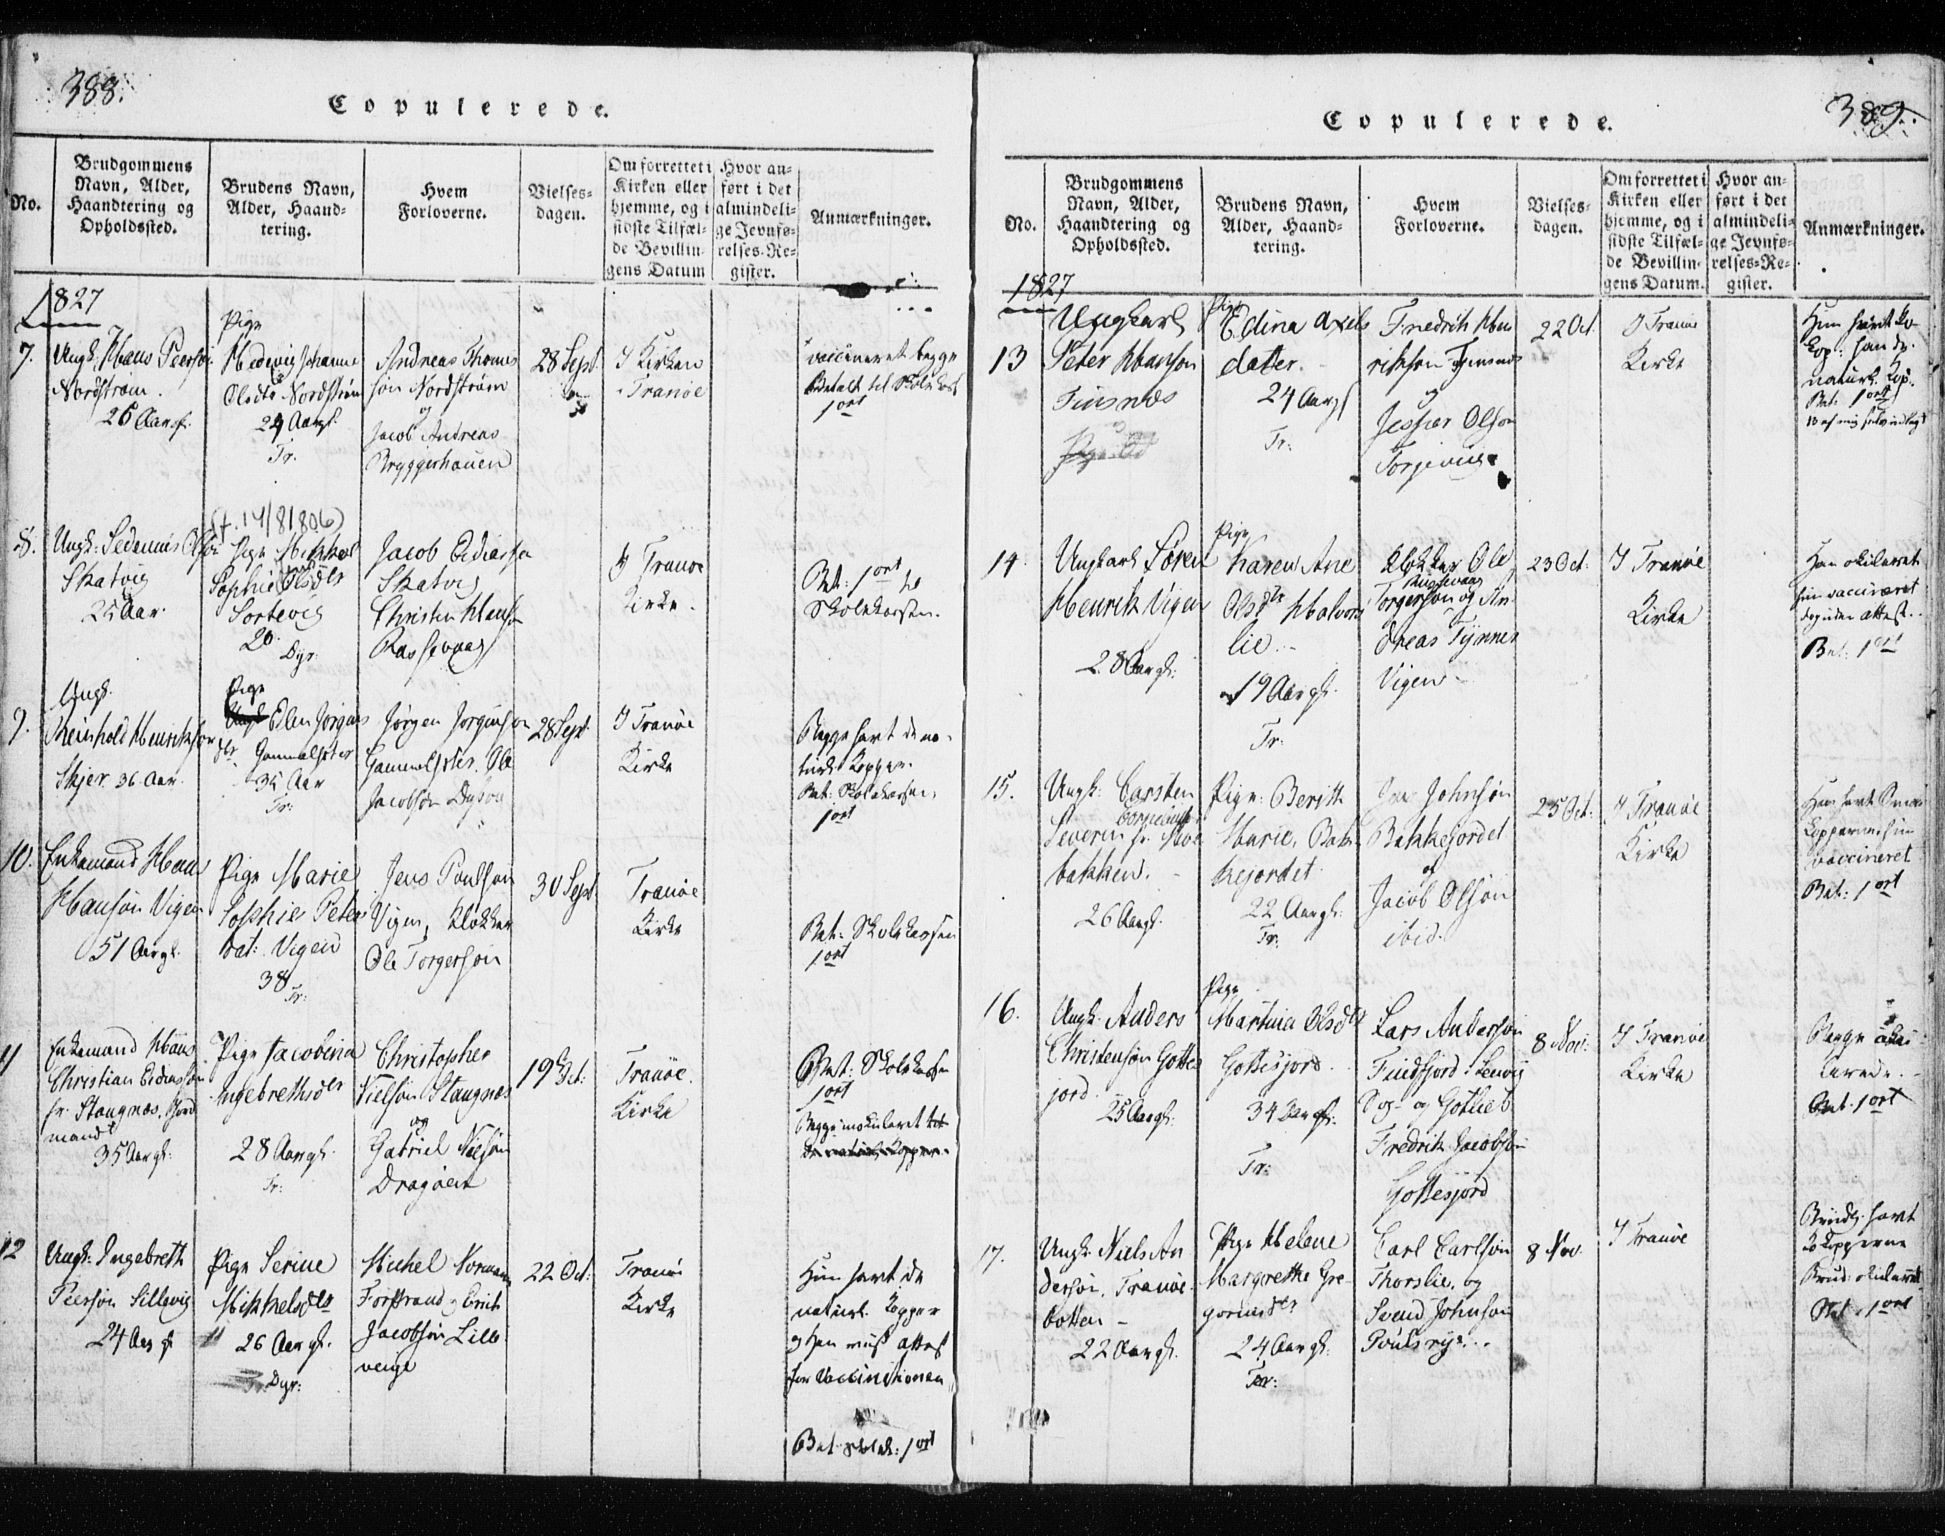 388.
Copulerede.
No.
Brudgommens
Navn, Alder,
Haandtering og
Opholdssted.
Brudens Navn,
Alder, Haand-
tering.
Hvem
Forloverne.
Vielses-
dagen.
Om forrettet i
Kirken eller
hjemme, og i
sidste Tilfæl-
de Bevillin-
gens Datum
Hvor an-
ført i det
almindeli-
ge Jevnfø-
relses-Re-
gister.
Anmærkninger.
1827
7.
Ungk. Hans Peersøn
Nordstrøm.
26 Aar gl.
Pige
Hedevig Johanne
Olsdtr Nordstrøm
24 Aargl.
Tr.
Andreas Thomes
søn Nordstrøm
og
Jacob Andreas
Bryggerhauen
28 Sept
I Kirken
Tranøe
vaccineret begge
Betalt til Skolek
1 ort
8.
Ungk: Sedenius Olsøn
Skatvig
25 Aar.
(f. 14/8 1806)
Pige Mikkel
Sophie
Sortevig
20.
Dyr.
Jacob Ediassøn
Skatvig
Christen Hansøn
Rasfevaag
I Tranøe
Kirke.
Bet: 1 ort til
Skolekassen.
9.
Ungk.
Reinhold Henriksøn
Skjer. 36 Aar.
Pige
Elen Jørgens
dtr. Gammelseter
35 Aar
Tr:
Jørgen Jørgensøn
Gammelseter. Ole
Jacobsøn Dysøen
28 Sept.
I Tranøe
Kirke
Begge havt de na-
turlk Kopper.
Bet: Skolekassen.
1 ort
10.
Enkemand Hans
Hansøn Vigen
51 Aar gl.
Pige Marie
Sophie Peters
dat: Vigen
38
Tr:
Jens Poulsøn
Vigen, Klokker
Ole Torgersøn
30 Sept
Tranøe
Kirke
Bet: Skolekassen
1 ort
11
Enkemand Hans
Christian Ediassøn
fr. Stangnæs.
mand
35 Aar gl:
Pige Jacobina
Ingebrethsdtr
28 Aar gl.
Tr:
Christopher
Nielsøn Stangnæs
og
Gabriel Nielsøn
Dragøen
19 Oct:
Tranøe.
Kirke
Bet: Skolekassen
1 ort
Begge inokuleret
12
Ungk: Ingebreth
Peersøn Sillevig
24 Aar gl
Pige Serine
Mikkelsdtr
26 Aar gl.
Dyr:
Michel Norman
Forstrand og Erich
Jacobsøn Lille
venge
22 Oct:
Tranøe
Kirke
Hun havt de
naturl. Kopper
og Han viist attest
for Vaccinationen
Bet Skolek: 1 ort
389.
Copulerede.
No.
Brudgommens
Navn, Alder,
Haandtering og
Opholdssted.
Brudens Navn,
Alder, Haand-
tering.
Hvem
Forloverne.
Vielses-
dagen.
Om forrettet i
Kirken eller
hjemme, og i
sidste Tilfæl-
de Bevillin-
gens Datum.
Hvor an-
ført i det
almindeli-
ge Jevnfø-
relses-Re-
gister.
Anmærkninger.
1827
13
Ungkarl
Peter Hansøn
Finsnæs
Pige
Edina Axels
datter.
24 Aargl
Tr:
Fredrik Hen
riksøn Finsnæs
og
Jesper Olsøn
Torjevig
22 Oct.
I Tranøe
Kirke
Hun havt Ko-
kop: han de
naturl. Kop.
Bet: 1 ort
14
Ungkarl Søren
Henrik Vigen
28 Aar gl:
Pige
Karen Ane
Olsdtr Halvors
lie.
19 Aar gl.
Tr:
Klokker Ole
Torgersøn og An-
dreas Tynnes
Vigen
23 Oct:
I Tranøe
Kirke
Han okuleret
hun vaccineret
dog uden attest.
Bet: 1 ort
15.
Ungk: Carsten
Severin
bakken.
26 Aargl.
Pige: Berith
Marie, Bak-
kejordet
22 Aar gl:
Tr:
Johnsøn
Bakkejordet
og
Jacob Olsøn
ibid.
25 Oct:
I Tranøe
Kirke
Han havt Smaa
Kopperne, hun
vaccineret
Bet: 1 ort
16.
Ungk: Anders
Christensøn Gottes
jord
25 Aar gl.
Pige
Martina Olsdtr
Gottesjord.
34 Aar gl.
Tr:
Lars Andersøn
Findfjord i Lenvig
Sog- og Gotlieb
Fredrik Jacobsøn
Gottesjord
8 Nov:
I Tranøe
Kirke
Begge oku
lerede.
Bet. 1 ort
17.
Ungk: Niels An
dersøn, Tranøe-
botten -
22 Aar gl.
Pige Helene
Margrethe Gre-
goriusdtr
24 Aar gl:
Tr:
Carl Carlsøn
Thorslie. og
Svend Johnsøn
Poulsryg...
8 Nov.
I Tranøe
Brudg: havt
Kokopperne
Brud: okuleret
Bet. 1 ort